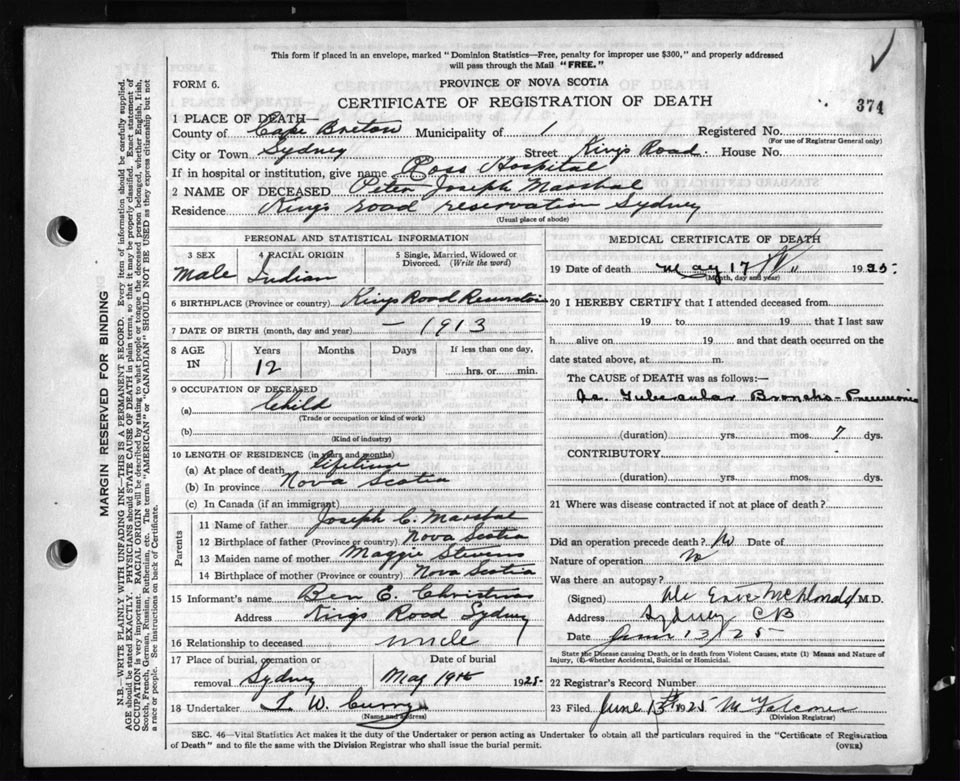 This form if placed in an envelope, marked "Dominion Statistics—Free, penalty for improper use $300," and properly addressed
will pass through the Mail "FREE."
FORM 6.
PROVINCE OF NOVA SCOTIA
CERTIFICATE OF REGISTRATION OF DEATH
374
1 PLACE OF DEATH—
County of Cape Breton Municipality of 1 Registered No.
(For use of Registrar General only)
City or Town Sydney Street Kings Road. House No.
If in hospital or institution, give name Ross Hospital
2 NAME OF DECEASED Peter Joseph Marshal
Residence Kings road reservation Sydney
(Usual place of abode)
PERSONAL AND STATISTICAL INFORMATION
3 SEX 4 RACIAL ORIGIN 5 Single, Married, Widowed or
Divorced. (Write the word)
Male Indian
6 BIRTHPLACE (Province or country) Kings Road
7 DATE OF BIRTH (month, day and year) — 1913
8 AGE IN Years Months Days If less than one day,
12 hrs. or min.
9 OCCUPATION OF DECEASED
(a) Child
(Trade or occupation or kind of work)
(b)
(Kind of industry)
10 LENGTH OF RESIDENCE (in years and months)
(a) At place of death lifetime
(b) In province Nova Scotia
(c) In Canada (if an immigrant)
Parents
11 Name of father Joseph C. Marshal
12 Birthplace of father (Province or country) Nova Scotia
13 Maiden name of mother Maggie Stevens
14 Birthplace of mother (Province or country) Nova Scotia
15 Informant's name Ben E. Christmas
Address Kings Road Sydney
16 Relationship to deceased uncle
17 Place of burial, cremation or Date of burial
removal Sydney May 19th 1925-
18 Undertaker T. W. Curry
(Name and address)
MEDICAL CERTIFICATE OF DEATH
19 Date of death May 17 1925-
(Month, day and year)
20 I HEREBY CERTIFY that I attended deceased from
19 to 19 that I last saw
h alive on 19 and that death occurred on the
date stated above, at m.
The CAUSE of DEATH was as follows:—
Ac. Tubercular Broncho-Pneumonia
(duration) yrs. mos. 7 dys.
CONTRIBUTORY
(duration) yrs. mos. dys.
21 Where was disease contracted if not at place of death?
Did an operation precede death? No Date of
Nature of operation
Was there an autopsy?
(Signed) M.D.
Address Sydney CB
Date June 13/25
State the Disease causing Death, or in death from Violent Causes, state (1) Means and Nature of
Injury, (2) whether Accidental, Suicidal or Homicidal.
22 Registrar's Record Number
23 Filed June 13th 1925
(Division Registrar)
SEC. 46—Vital Statistics Act makes it the duty of the Undertaker or person acting as Undertaker to obtain all the particulars required in the "Certificate of Registration
of Death" and to file the same with the Division Registrar who shall issue the burial permit.
(OVER)
MARGIN RESERVED FOR BINDING
N.B.—WRITE PLAINLY WITH UNFADING INK—THIS IS A PERMANENT RECORD. Every item of information should be carefully supplied.
AGE should be stated EXACTLY. PHYSICIANS should STATE CAUSE OF DEATH in plain terms, so that it may be properly classified. Exact statement of
OCCUPATION is very important. RACIAL ORIGIN will be described by stating to what people or tongue the deceased person belonged, whether English, Irish,
Scotch, French, German, Russian, Ruthenian, etc. The terms "AMERICAN" or "CANADIAN" SHOULD NOT BE USED as they express citizenship but not
a race or people. See instructions on back of Certificate.